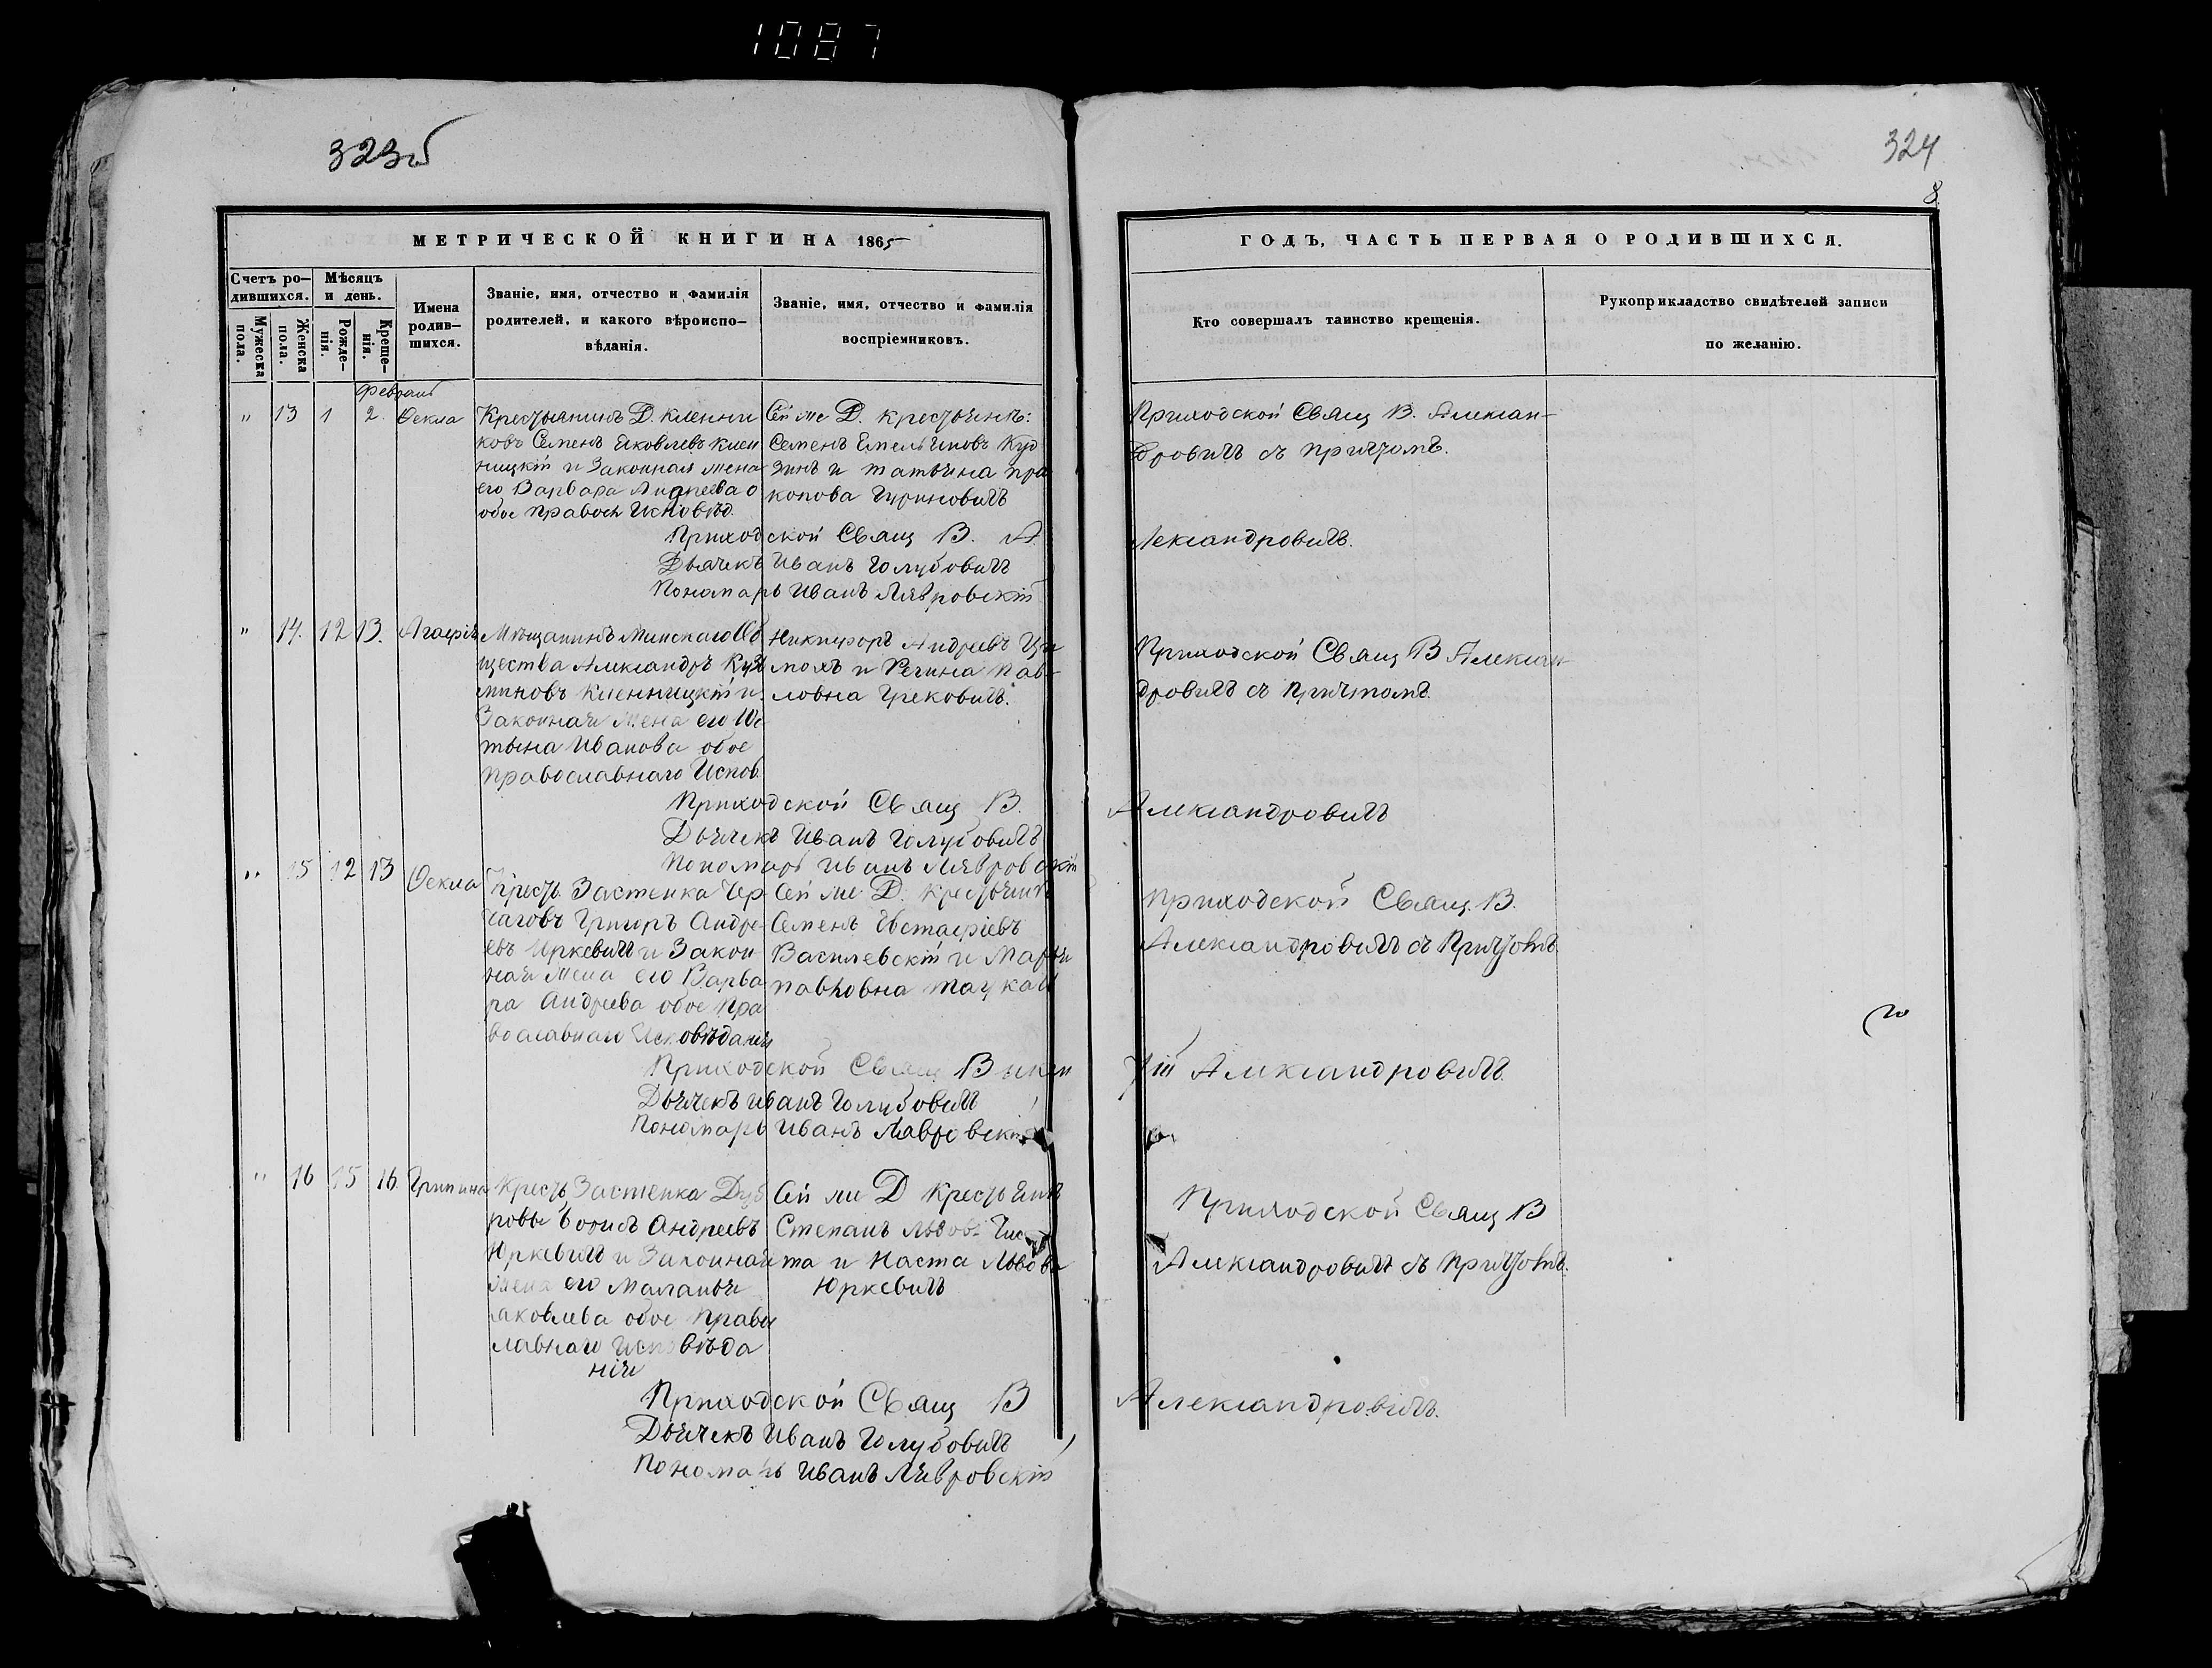 1087
323б
324
8
МЕТРИЧЕСКОЙ КНИГИ НА 1865
ГОДЪ, ЧАСТЬ ПЕРВАЯ О РОДИВШИХСЯ.
Счетъ ро-
дившихся.
Мужеска
пола.
Женска
пола.
Мѣсяцъ
и день.
Рожде-
нія.
Креще-
нія.
Имена
родив-
шихся.
Званіе, имя, отчество и фамилія
родителей, и какого вѣроиспо-
вѣданія.
Званіе, имя, отчество и фамилія
воспріемниковъ.
Кто совершалъ таинство крещенія.
Рукоприкладство свидѣтелей записи
по желанію.
февраль
" 13 1 2. Ѳекла
Крестьянинъ Д. Кленни
ковъ Семенъ Яковлевъ Клен
ницкій и Законная жена
его Варвара Андреева о
обое правосл Исповѣд.
Сей же Д. крестьянинъ:
Семенъ Емельяновъ
и татьяна про
копова Гуриновичъ
Приходской Свящ В. Алексан-
дровичъ съ причтомъ.
Приходской Свящ В. А
лександровичъ.
Дьячекъ Иванъ Голубовичъ
Пономарь Иванъ Лявровскій
" 14. 12 13. Агафія
Мѣщанинъ Минскаго Об
щества Александръ Кузь
миновъ Кленницкій и
Законная жена его Юс
тына Иванова обое
православнаго Испов.
Никифоръ Андреевъ
и Регина Пав-
ловна Грековичъ.
Приходской Свящ В Алексан
дровичъ съ Причтомъ.
Приходской Свящ В.
Александровичъ
Дьячекъ Иванъ Голубовичъ
Пономарь Иванъ Лявровскій
" 15 12 13 Ѳекла
Крест. Застенка Чер
чаговъ Григоръ Андре-
евъ Юркевичъ и Закон-
ная жена его Варва
ра Андреева обое Пра
вославнаго Исповѣданія
Сей же Д. Крестьянинъ
Семенъ Евстафіевъ
Василевскій и Марья
павловна
Приходской Свящ. В.
Александровичъ съ Причтомъ
Приходской Свящ Викен
тій Александровичъ.
Дьячекъ иванъ Голубовичъ
Пономарь Иванъ Лявровскій
" 16 15 16 Грипина
Крест. Застенка Дуб
ровы Борисъ Андреевъ
Юркевичъ и Законная
жена его Маланья
яковлева обое Правос
лавнаго Исповѣда
нія
Сей же Д Крестьянинъ
Степанъ Львовъ
та и Наста Львова
Юркевичъ
Приходской Свящ В
Александровичъ съ Причтомъ.
Приходской Свящ В
Александровичъ.
Дьячекъ Иванъ Голубовичъ
Пономарь Иванъ Лявровскій